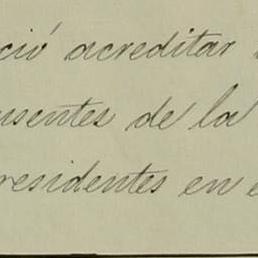 ció acreditar
usentes de la
residentes en e